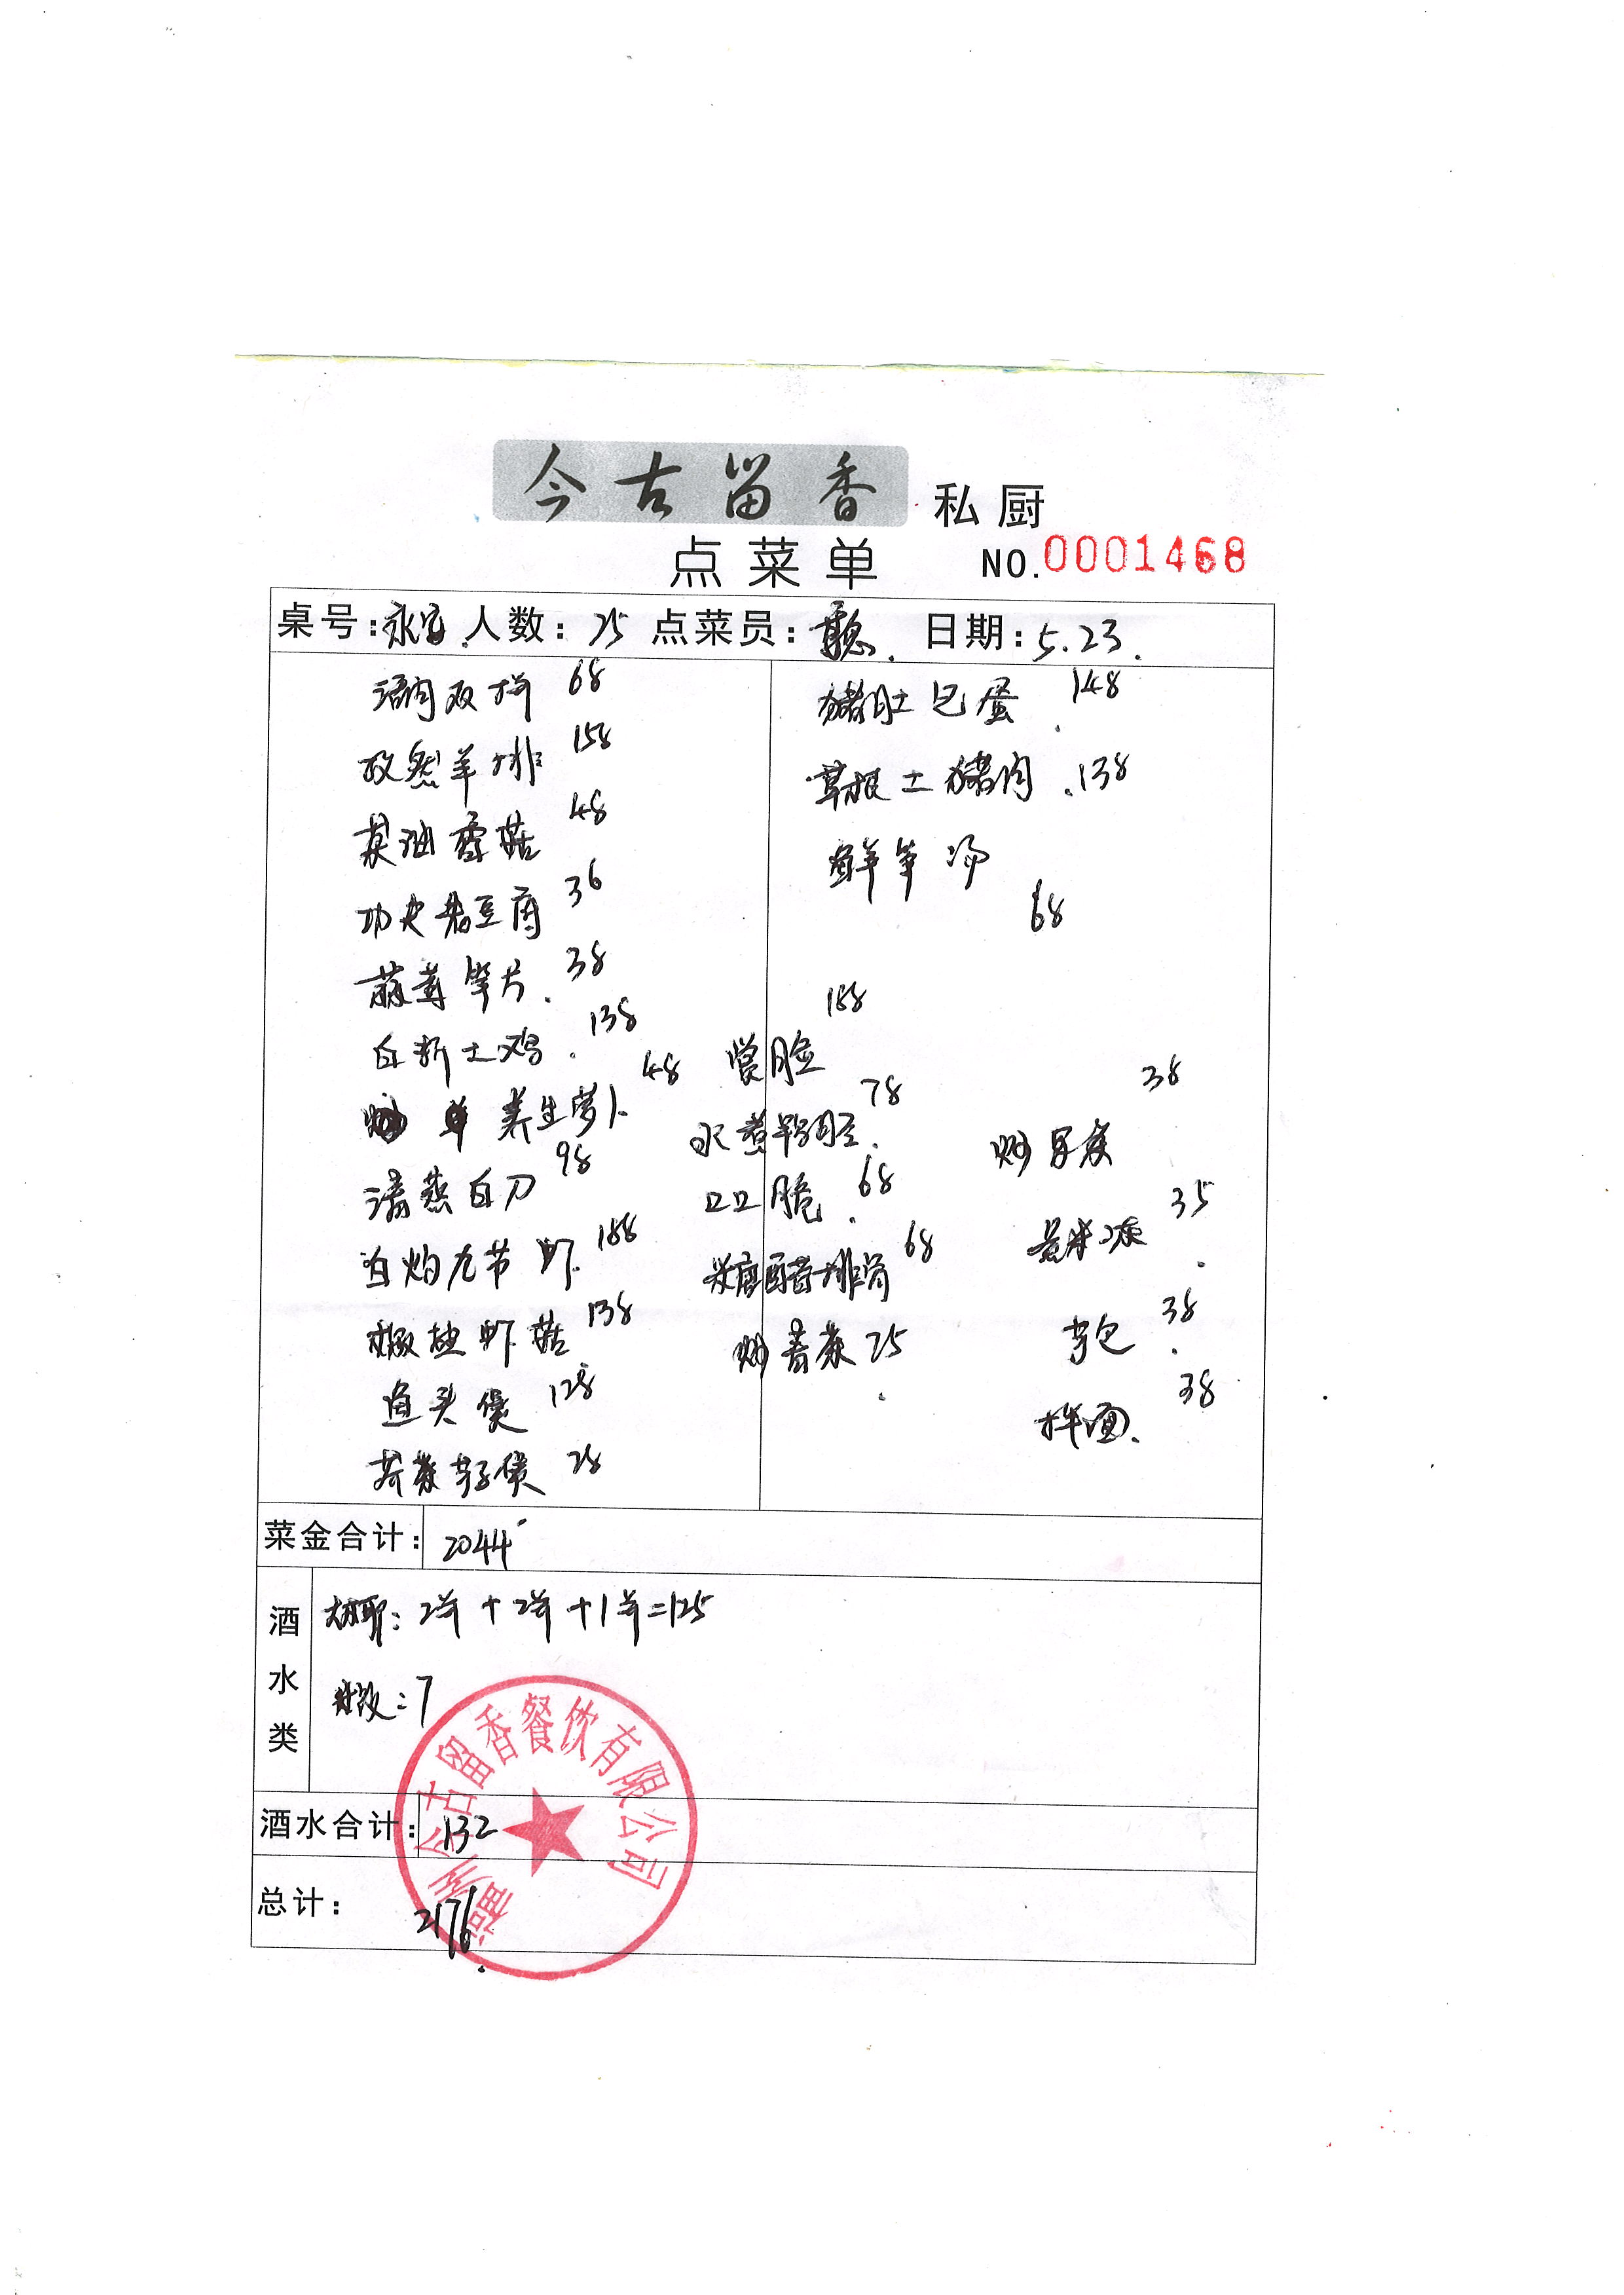 今古留香 私厨
点菜单 NO.0001468
桌号: 永宝. 人数: 25 点菜员: 聪. 日期: 5.23.
双拼 68
孜然羊排 158
菌菇 48
功夫老豆腐 36
笋片. 38
白斩土鸡. 138
养生萝卜 48
清蒸白刀 98
白灼九节虾. 188
椒盐虾菇 138
鱼头煲 128
芥菜芋子煲 28
猪肚包蛋. 148
草根土猪肉. 138
鲜笋汤
68
脸 188
水煮. 78
口口脆. 68
糖醋排骨 68
炒青菜 25
炒 38
35
芋包. 38
拌面. 38
菜金合计: 2044
酒水类
椰: 2 + 2 + 1 = 125
饭: 7
酒水合计: 132
总计: 2176.
州今古留香餐饮有限公司